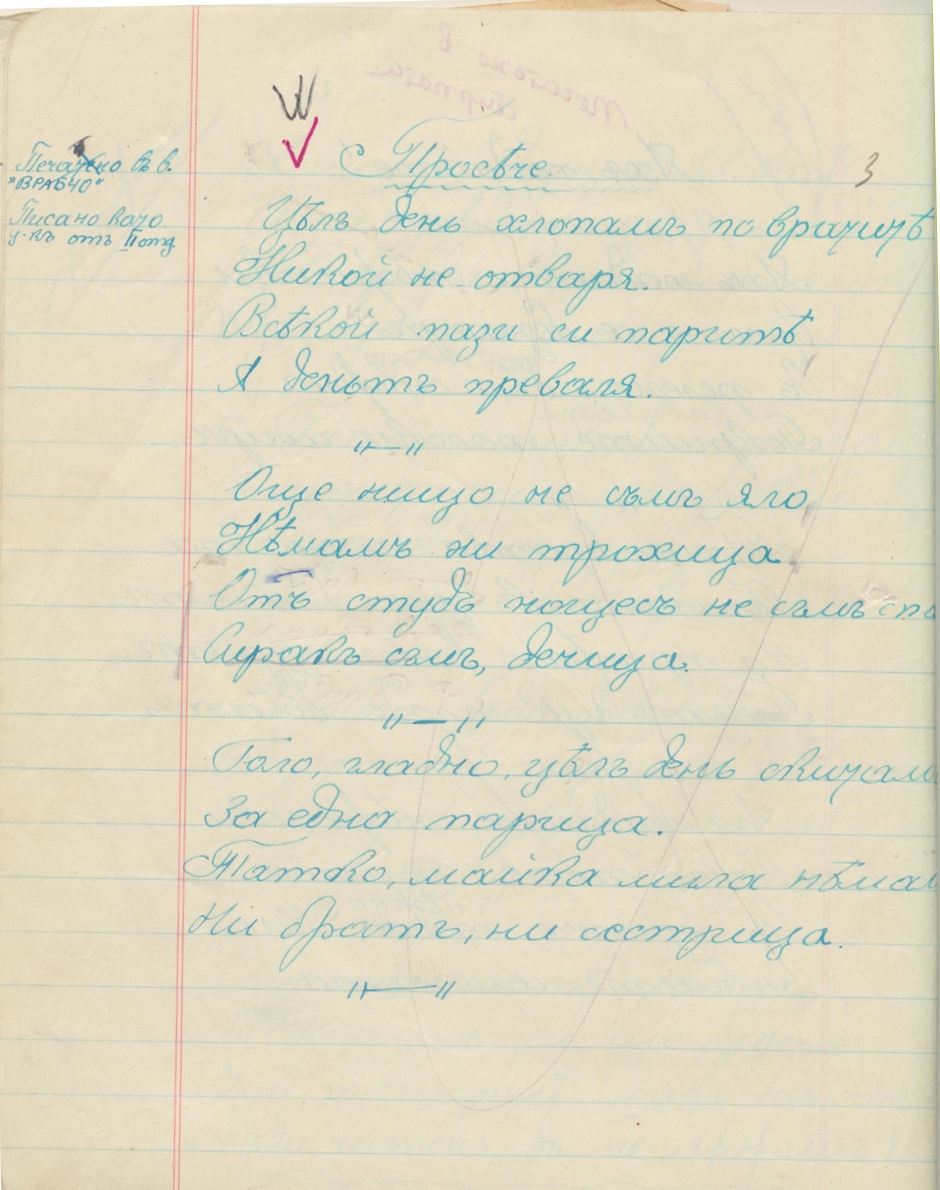 Просѣче
3
Печатено въ в.
"ВРАБЧО"
Писано като
у-къ отъ II отд
Цѣлъ день хлопамъ по вратитѣ
Никой не отваря.
Всѣкой пази си паритѣ
А деньтъ преваля.
"—"
Още нищо не съмъ яло
Нѣмамъ ни трохица
Отъ студъ нощесъ не съмъ спа
Сиракъ съмъ, дечица.
"—"
Голо, гладно, цѣлъ день скитамъ
За една парица.
Татко, майка мила нѣмам
Ни братъ, ни сестрица.
"—"